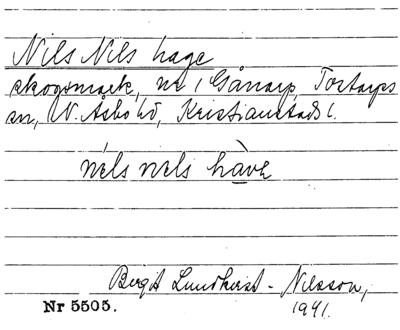 Nils Nils hage
skogsmark, nr 1 Gånarp, Tostarps
sn, V. Åsbo hd, Kristianstads l.
nils nils hàve
Birgit Lundkvist - Nilsson,
1941.
Nr 5505.